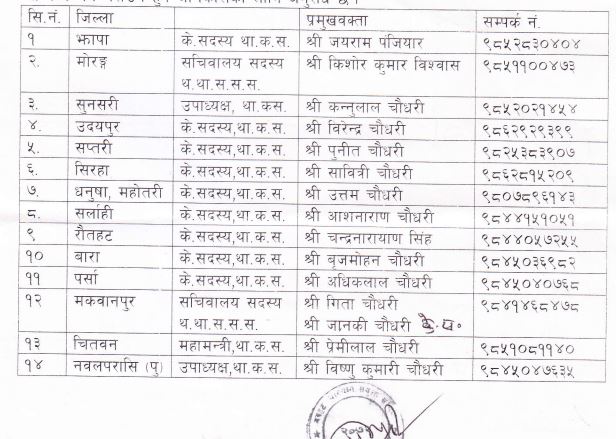 सि.नं. जिल्ला प्रमुखवक्ता सम्पर्क नं.
१ झापा के.सदस्य था.क.स. श्री जयराम पंजियार ९८५२८३०४०४
२. मोरङ्ग सचिवालय सदस्य थ.था.स.स.स. श्री किशोर कुमार विश्वास ९८५११००४७३
३. सुनसरी उपाध्यक्ष, था.कस. श्री कन्नुलाल चौधरी ९८५२०२१४५४
४. उदयपुर के.सदस्य,था.क.स. श्री विरेन्द्र चौधरी ९८६२९२९३९९
५. सप्तरी के.सदस्य,था.क.स. श्री पुनीत चौधरी ९८२५३८३९०७
६. सिरहा के.सदस्य,था.क.स. श्री सावित्री चौधरी ९८६२८१५२०९
७. धनुषा, महोतरी के.सदस्य,था.क.स. श्री उत्तम चौधरी ९८०७८९६१४३
८. सर्लाही के.सदस्य,था.क.स. श्री आशनाराण चौधरी ९८४४१५१०५१
९ रौतहट के.सदस्य,था.क.स. श्री चन्द्रनारायाण सिंह ९८४४०५७२५५
१० बारा के.सदस्य,था.क.स. श्री बृजमोहन चौधरी ९८४५०३६९८२
११ पर्सा के.सदस्य,था.क.स. श्री अधिकलाल चौधरी ९८४५०४०७६८
१२ मकवानपुर सचिवालय सदस्य श्री गिता चौधरी ९८४१४६८४७८
थ.था.स.स.स. श्री जानकी चौधरी
१३ चितवन महामन्त्री,था.क.स. श्री प्रेमीलाल चौधरी ९८५१०८११४०
१४ नवलपरासि (पु) उपाध्यक्ष,था.क.स. श्री विष्णु कुमारी चौधरी ९८४५०४७६३५